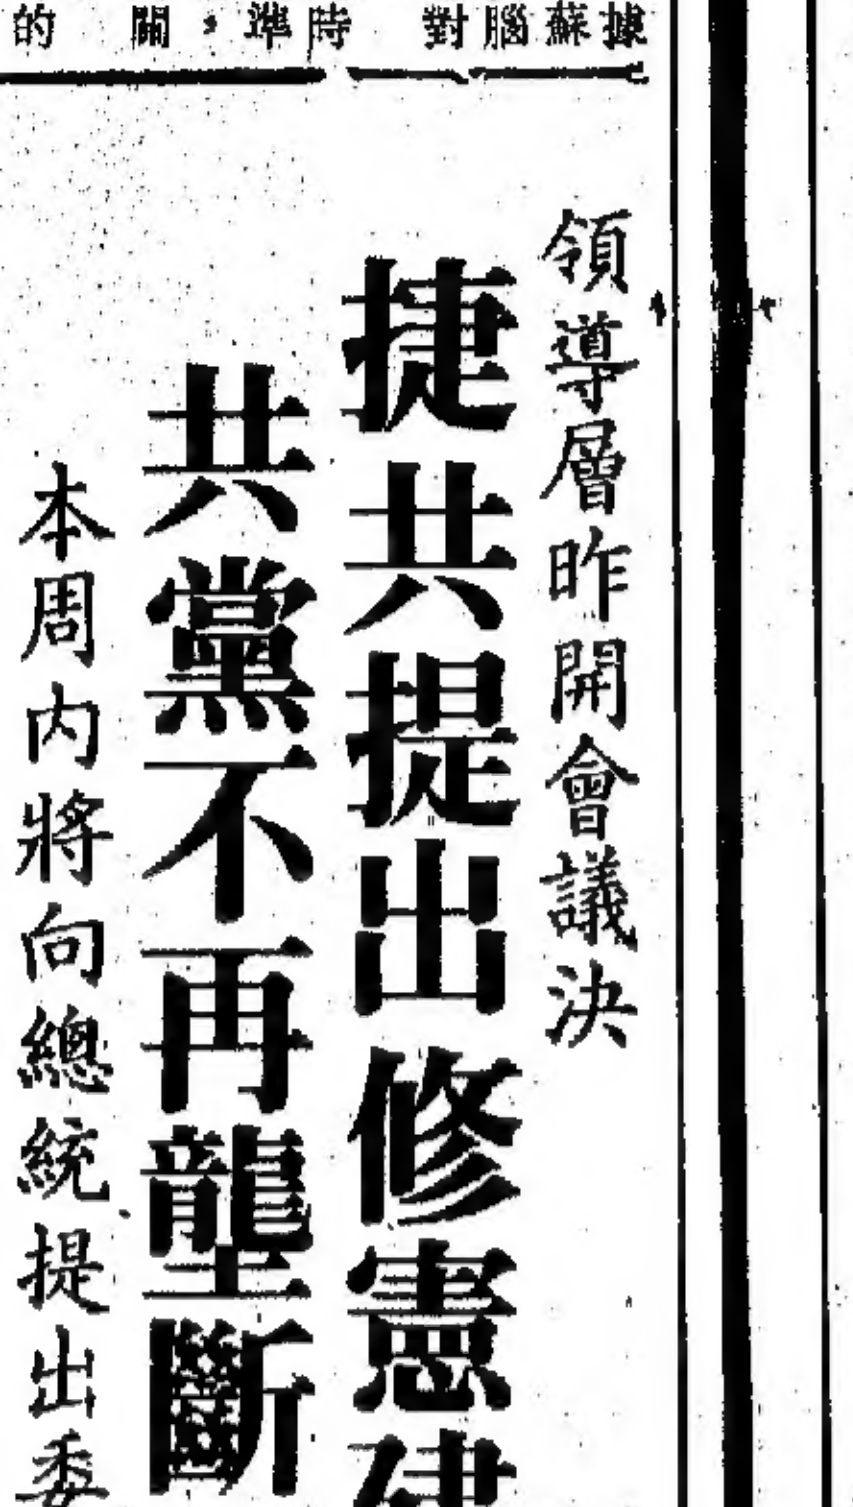 據蘇腦對 時準，關 的
領導層昨開會議決
捷共提出修憲建
共黨不再壟斷
本周內將向總統提出委